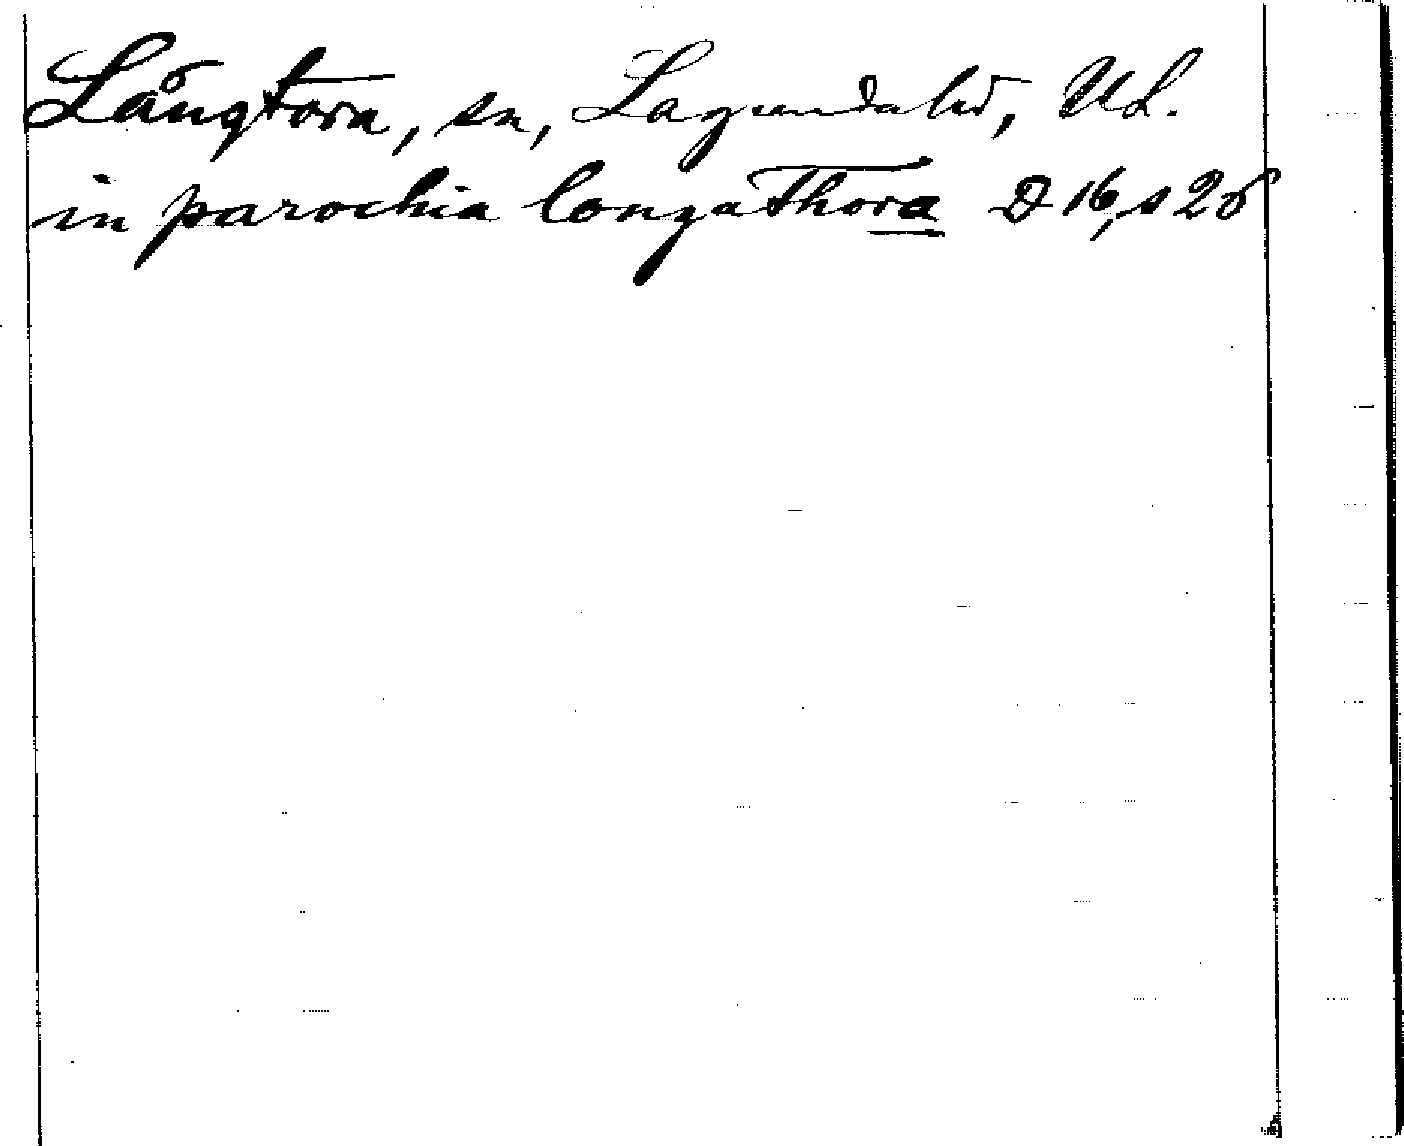 Långtora, sn, Lagunda hd, UL.
in parochia longaThora D 16, s 28